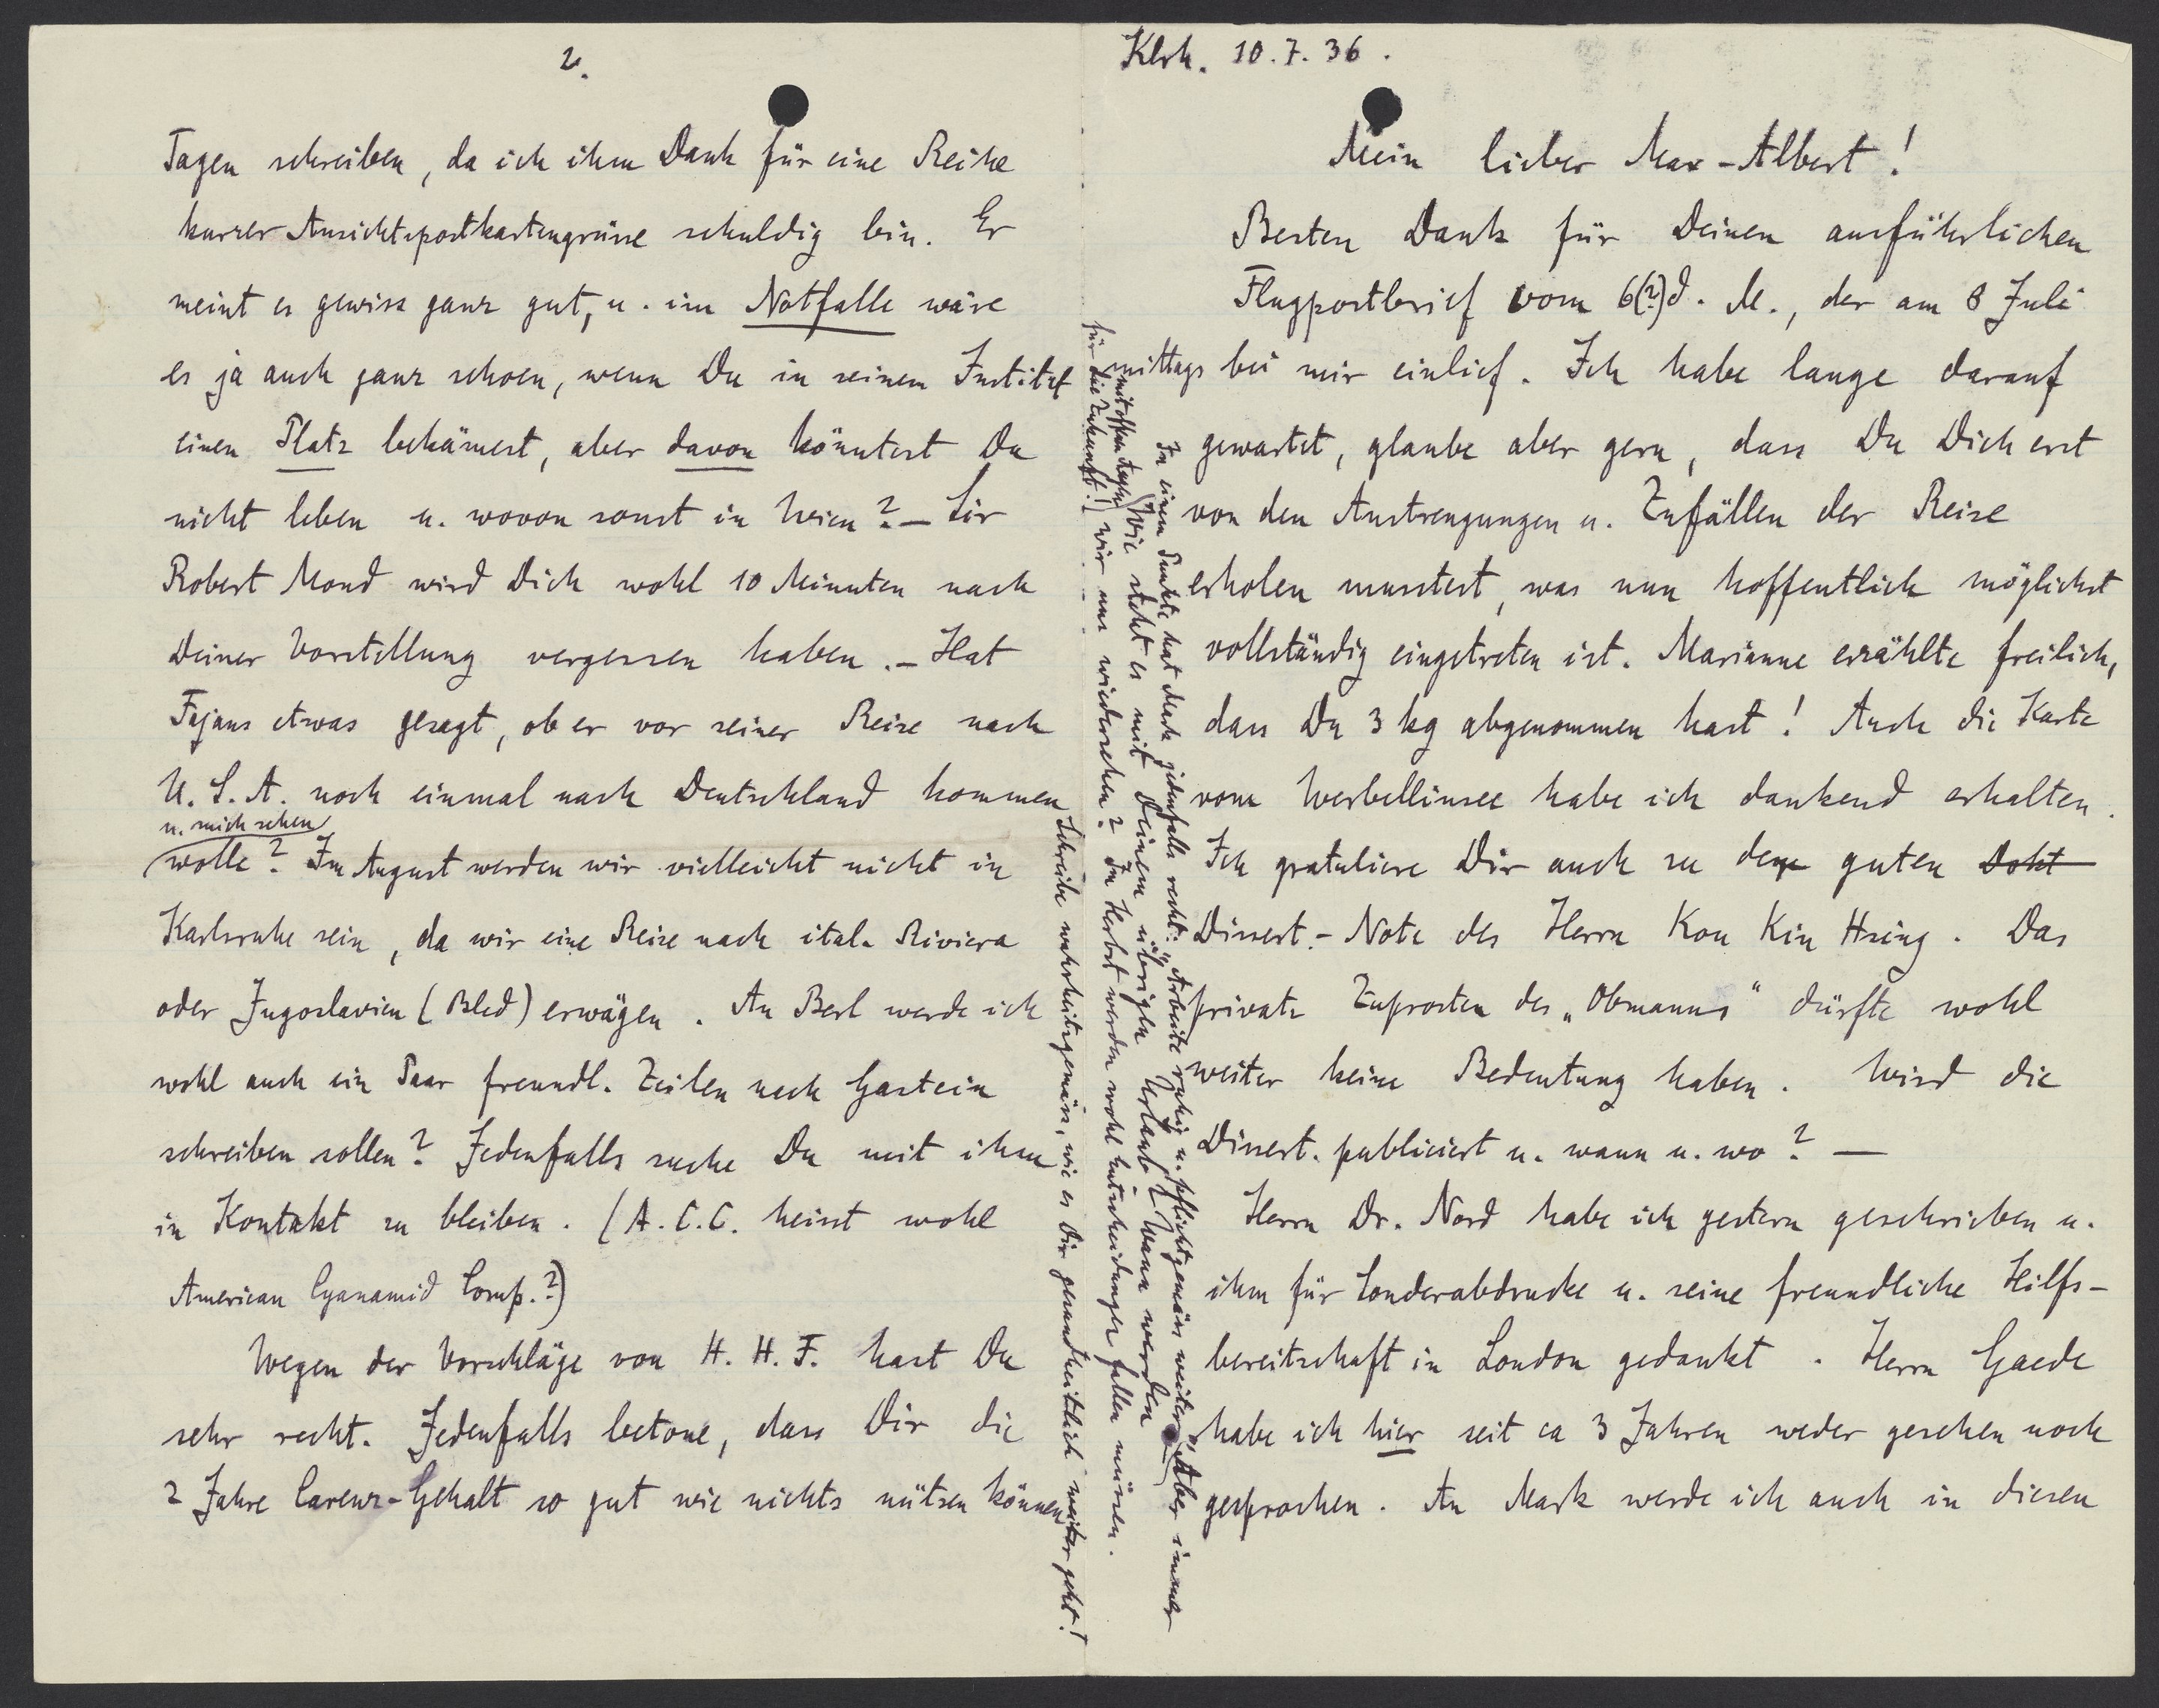 Klrh. 10.7.36.
Mein lieber Max-Albert!
Besten Dank für Deinen ausführlichen
Flugpostbrief vom 6(?) d. M., der am 8 Juli
mittags bei mir einlief. Ich habe lange darauf
gewartet, glaube aber gern, dass Du Dich erst
von den Anstrengungen u. Zufällen der Reise
erholen musstest, was nun hoffentlich möglichst
vollständig eingetreten ist. Marianne erzählte freilich,
dass Du 3 kg abgenommen hast! Auch die Karte
vom Werbellinsee habe ich dankend erhalten.
Ich gratuliere Dir auch zu der guten Dokt
Dissert.-Note des Herrn Kou Kin Hsing. Das
private Zuprosten des „Obmanns" dürfte wohl
weiter keine Bedeutung haben. Wird die
Dissert. publiciert u. wann u. wo? —
Herrn Dr. Nord habe ich gestern geschrieben u.
ihm für Sonderabdrucke u. seine freundliche Hilfs-
bereitschaft in London gedankt. Herrn Gaede
habe ich hier seit ca 3 Jahren weder gesehen noch
gesprochen. An Mark werde ich auch in diesen
2.
Tagen schreiben, da ich ihm Dank für eine Reihe
kurzer Ansichtspostkartengrüsse schuldig bin. Er
meint es gewiss ganz gut, u. im Notfalle wäre
es ja auch ganz schoen, wenn Du in seinem Institut
einen Platz bekämest, aber davon könntest Du
nicht leben u. wovon sonst in Wien? — Sir
Robert Mond wird Dich wohl 10 Minuten nach
Deiner Vorstellung vergessen haben. — Hat
Fajans etwas gesagt, ob er vor seiner Reise nach
U.S.A. noch einmal nach Deutschland kommen
u. mich sehen
wolle? Im August werden wir vielleicht nicht in
Karlsruhe sein, da wir eine Reise nach ital. Riviera
oder Jugoslavien (Bled) erwägen. An Berl werde ich
wohl auch ein Paar freundl. Zeilen nach Gastein
schreiben sollen? Jedenfalls suche Du mit ihm
in Kontakt zu bleiben. (A.C.C. heisst wohl
American Cyanamid Comp.?)
Wegen der Vorschläge von H. H. F. hast Du
sehr recht. Jedenfalls betone, dass Dir die
2 Jahre Carenz-Gehalt so gut wie nichts nützen können
In einem Punkte hat Mark jedenfalls recht: „Arbeite ruhig u. pflichtgemäss weiter" (Aber immer
mit offen Augen
für die Zukunft!)
Wie steht es mit Deinem übrigen Urlaub? Wann werden
wir uns wiedersehen? Im Herbst werden wohl Entscheidungen fallen müssen.
Schreibe wahrheitsgemäss, wie es Dir gesundheitlich weiter geht!